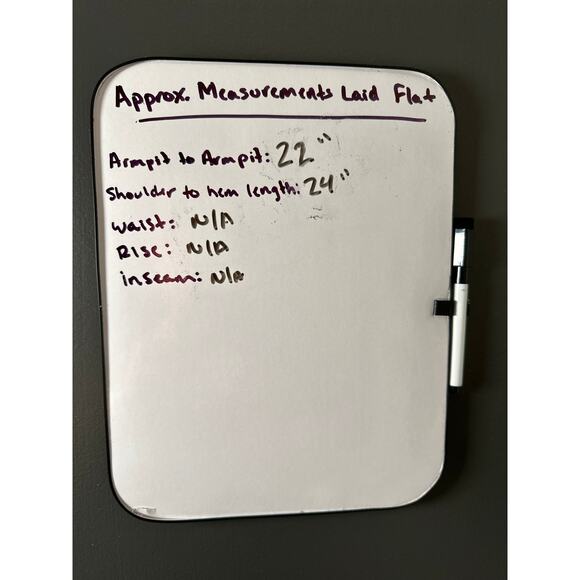 Approx. Measurements Laid Flat
Armpit to Armpit: 22"
Shoulder to hem length: 24"
waist: N/A
Rise: N/A
inseam: N/A